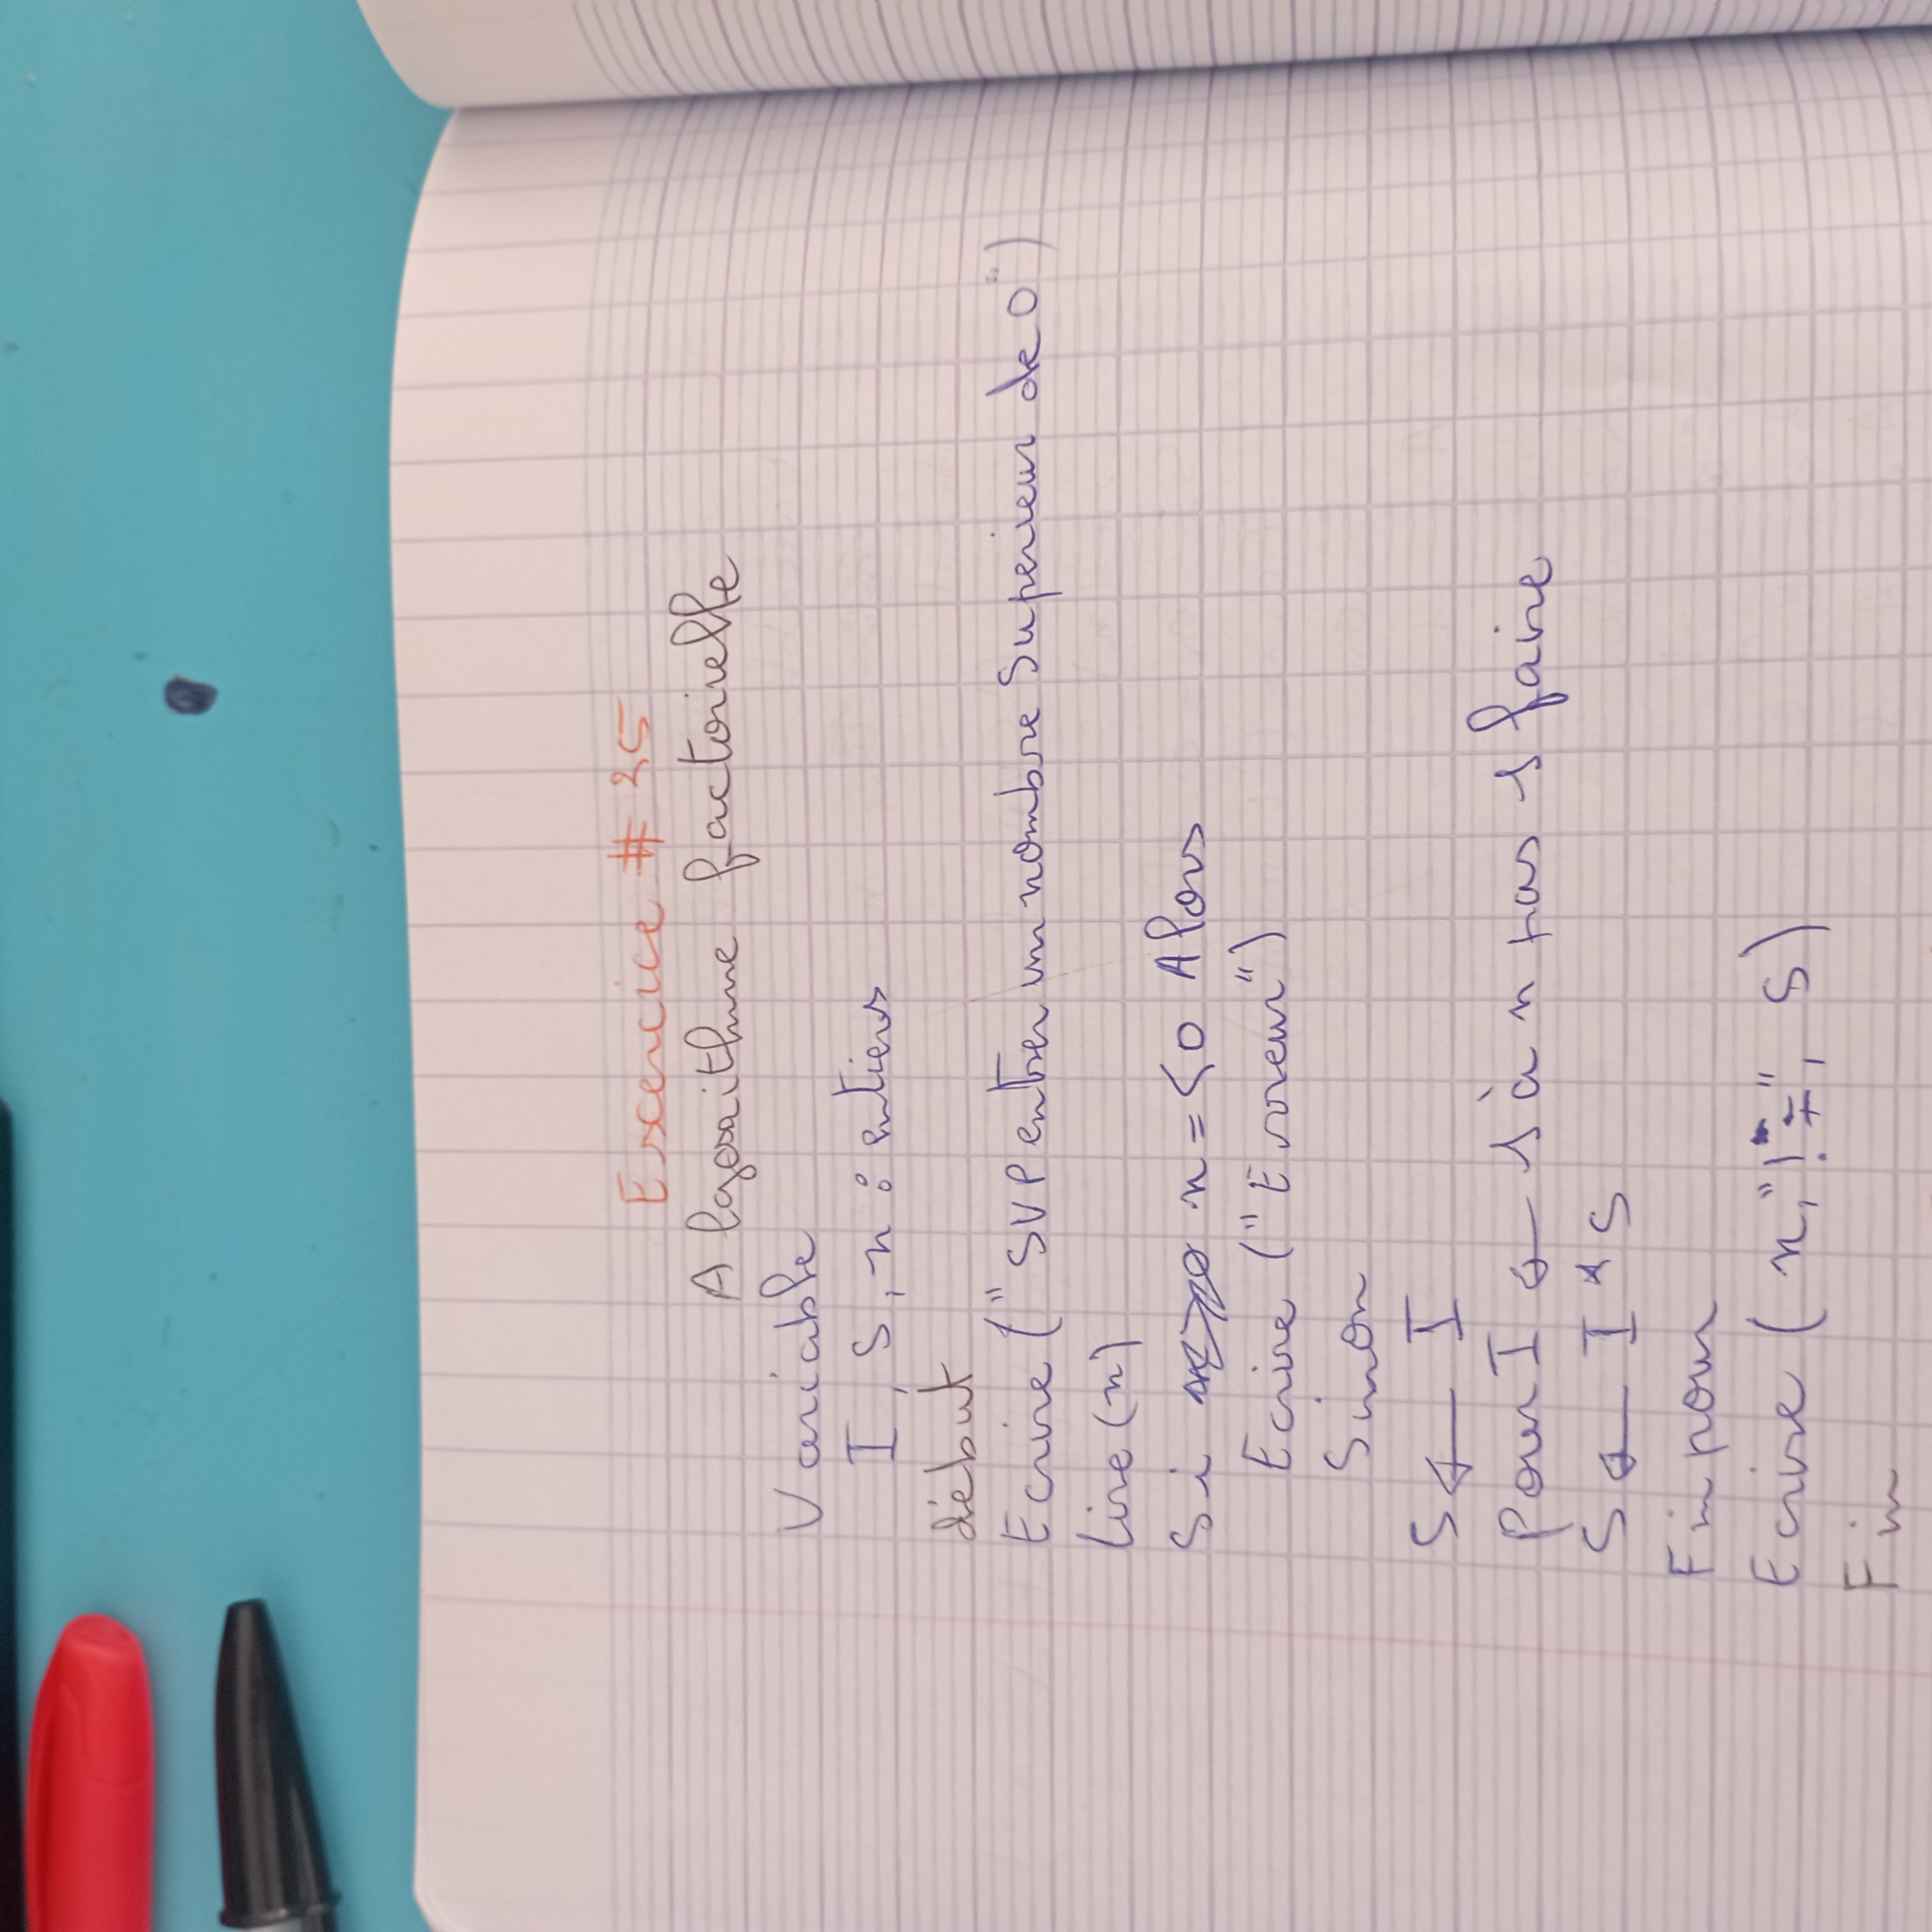 Excercice # 35
Algorithme factorielle
Variable
I, S, n : entiers
début
Ecrire ("SVP entrer un nombre Superieur de 0")
lire (n)
Si n =< 0 Alors
Ecrire ("Erreur")
Sinon
S ← I
pour I ← 1 à n pas 1 faire
S ← I * S
Fin pour
Ecrire (n, "! =", S)
Fin